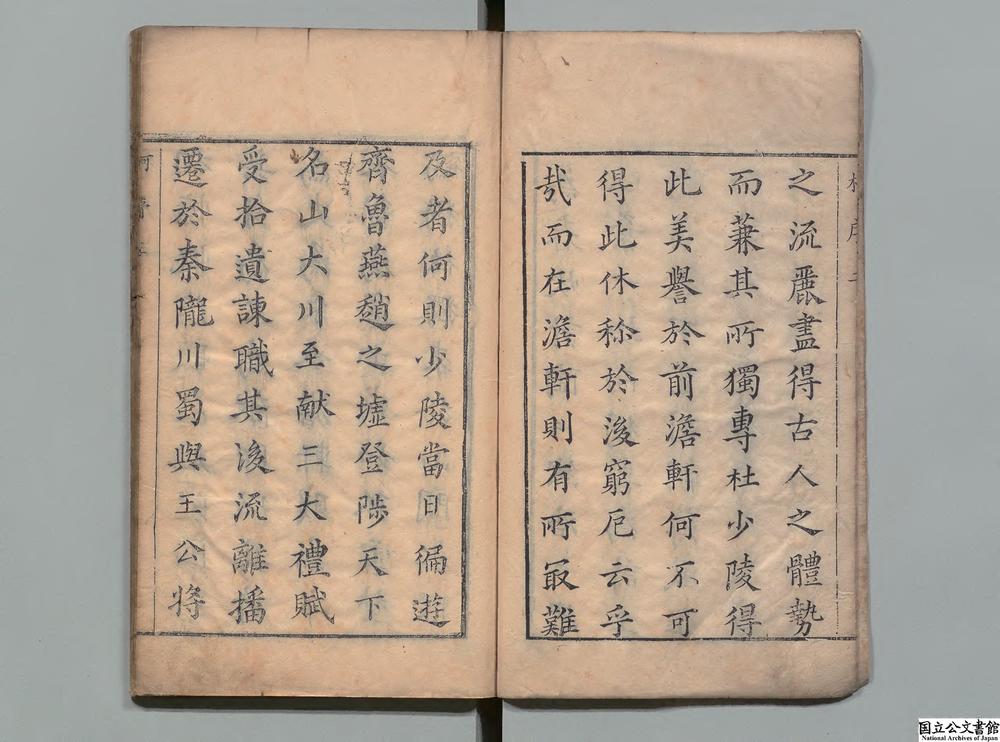 之流麗盡得古人之體勢
而蒹其所獨專杜少陵得
此美譽於前澹軒何不可
得此休稱於後窮厄云乎
哉而在澹軒則有所最難
及者何則少陵當日徧遊
齊魯燕趙之墟登陟天下
名山大川至献三大禮賦
受拾遺諫職其後流離播
遷於秦隴川蜀與王公將
国立公文書館
National Archives of Japan